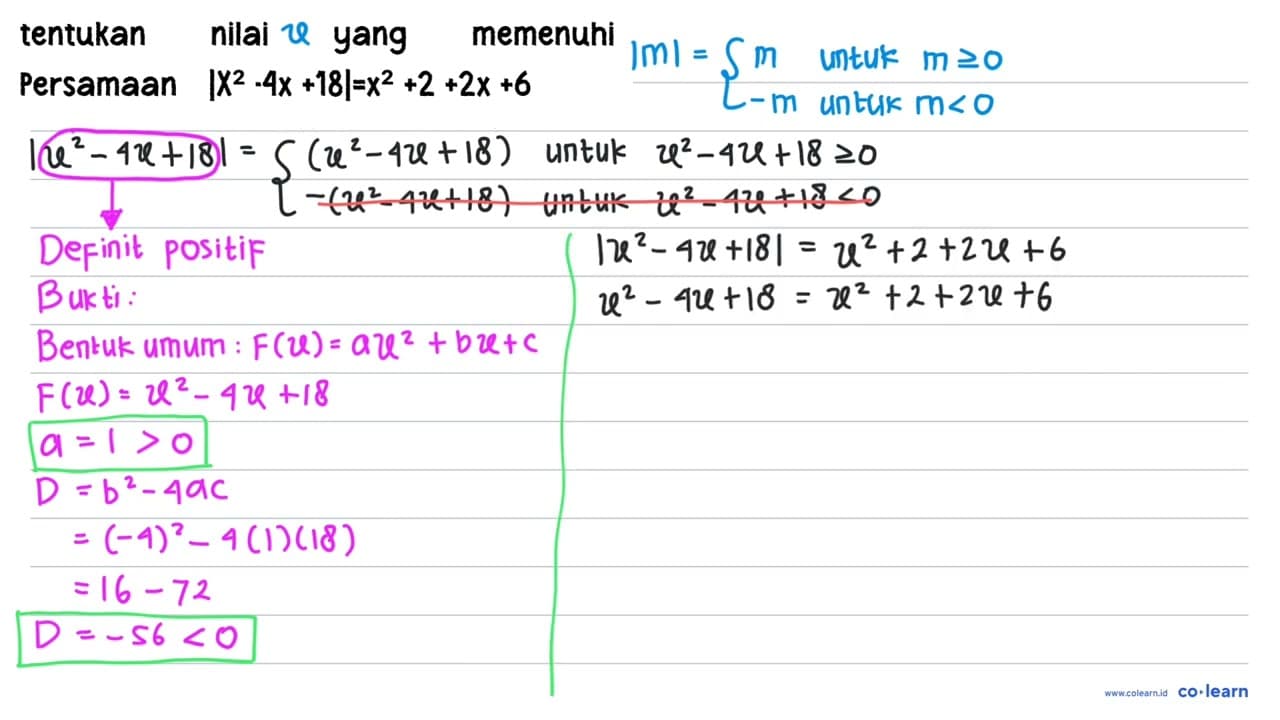 tentukan nilai x yang memenuhi
Persamaan |X² -4x +18|=x² +2 +2x +6
|m| = { m untuk m ≥ 0
-m untuk m < 0
|x² - 4x + 18| = { (x² - 4x + 18) untuk x² - 4x + 18 ≥ 0
-(x² - 4x + 18) untuk x² - 4x + 18 < 0
Definit positif
Bukti :
Bentuk umum : F(x) = ax² + bx + c
F(x) = x² - 4x + 18
a = 1 > 0
D = b² - 4ac
= (-4)² - 4 (1)(18)
= 16 - 72
D = -56 < 0
|x² - 4x + 18| = x² + 2 + 2x + 6
x² - 4x + 18 = x² + 2 + 2x + 6
www.colearn.id co·learn